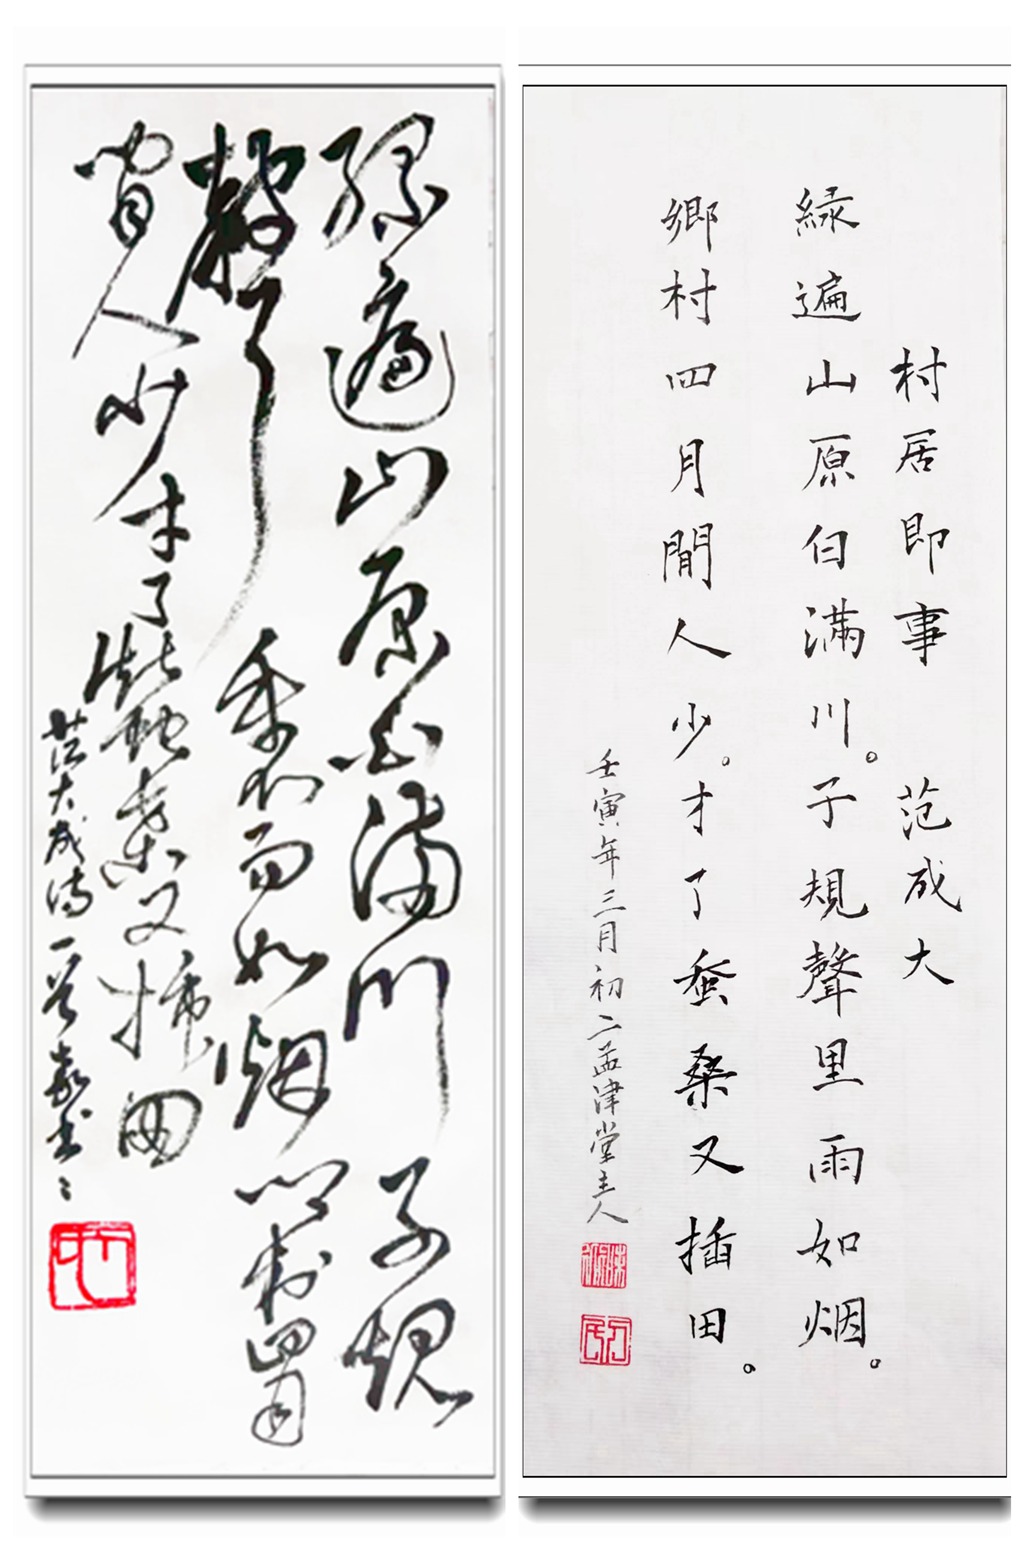 绿遍山原白满川子规
聲裏雨如烟乡村四月
閒人少才了蠶桑又插田
范大成诗
村居即事 范成大
緑遍山原白满川。子規聲里雨如烟。
鄉村四月閒人少。才了蚕桑又插田。
壬寅年三月初二孟津堂主人